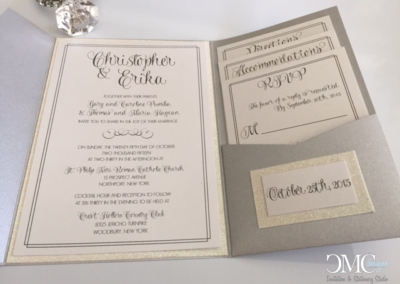 Christopher
& Erika
TOGETHER WITH THEIR PARENTS
Gary and Caroline
Thomas and Maria
INVITE YOU TO SHARE IN THE JOY OF THEIR MARRIAGE
ON SUNDAY, THE TWENTY FIFTH DAY OF OCTOBER
TWO THOUSAND FIFTEEN
AT TWO-THIRTY IN THE AFTERNOON AT
St. Philip Neri Roman Catholic Church
15 PROSPECT AVENUE
NORTHPORT, NEW YORK
COCKTAIL HOUR AND RECEPTION TO FOLLOW
AT SIX THIRTY IN THE EVENING TO BE HELD AT
Crest Hollow Country Club
8325 JERICHO TURNPIKE
WOODBURY, NEW YORK
Directions
Accommodations
RSVP
The favor of a reply is requested
By September 20th, 2015
M
October 25th, 2015
CMC
Invitation & Stationery Studio